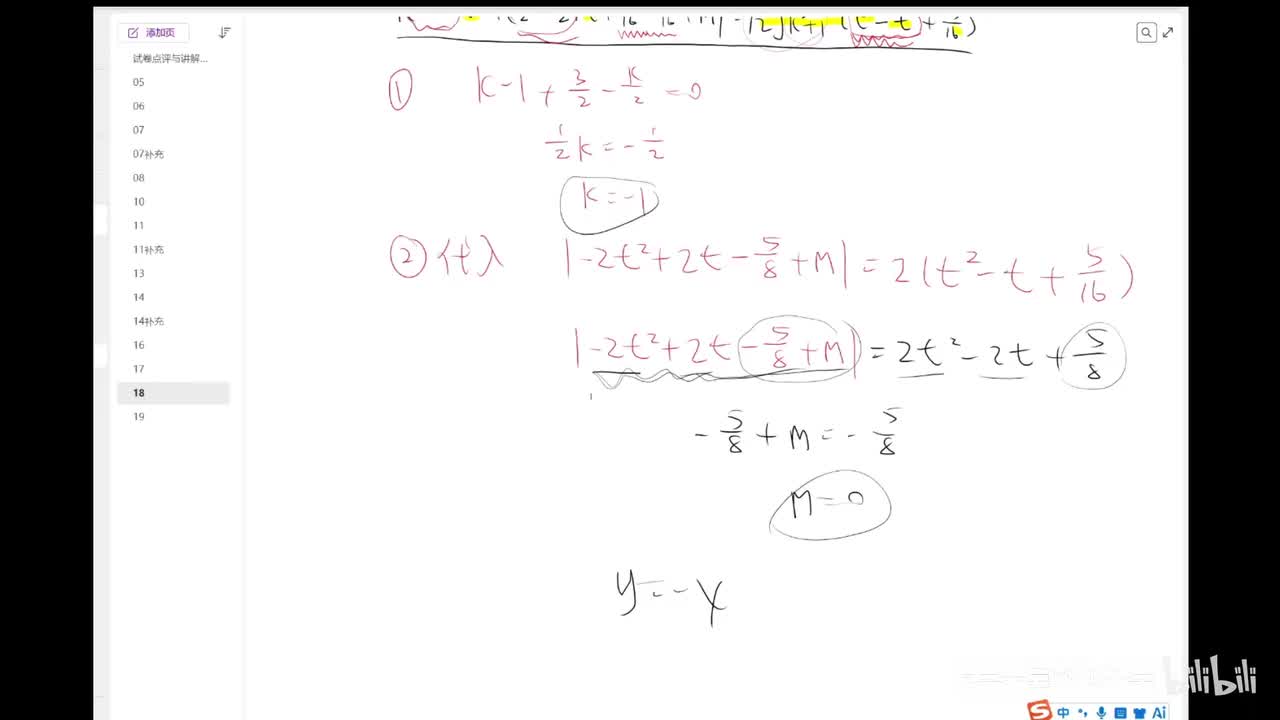 添加页
试卷点评与讲解...
05
06
07
07补充
08
10
11
11补充
13
14
14补充
16
17
18
19
① k-1+3/2-k/2=0
1/2k=-1/2
k=-1
②代入 |-2t²+2t-5/8+m|=2(t²-t+5/16)
|-2t²+2t-5/8+m|=2t²-2t+5/8
-5/8+m=-5/8
m=0
y=-x
bilibili
S中
Ai